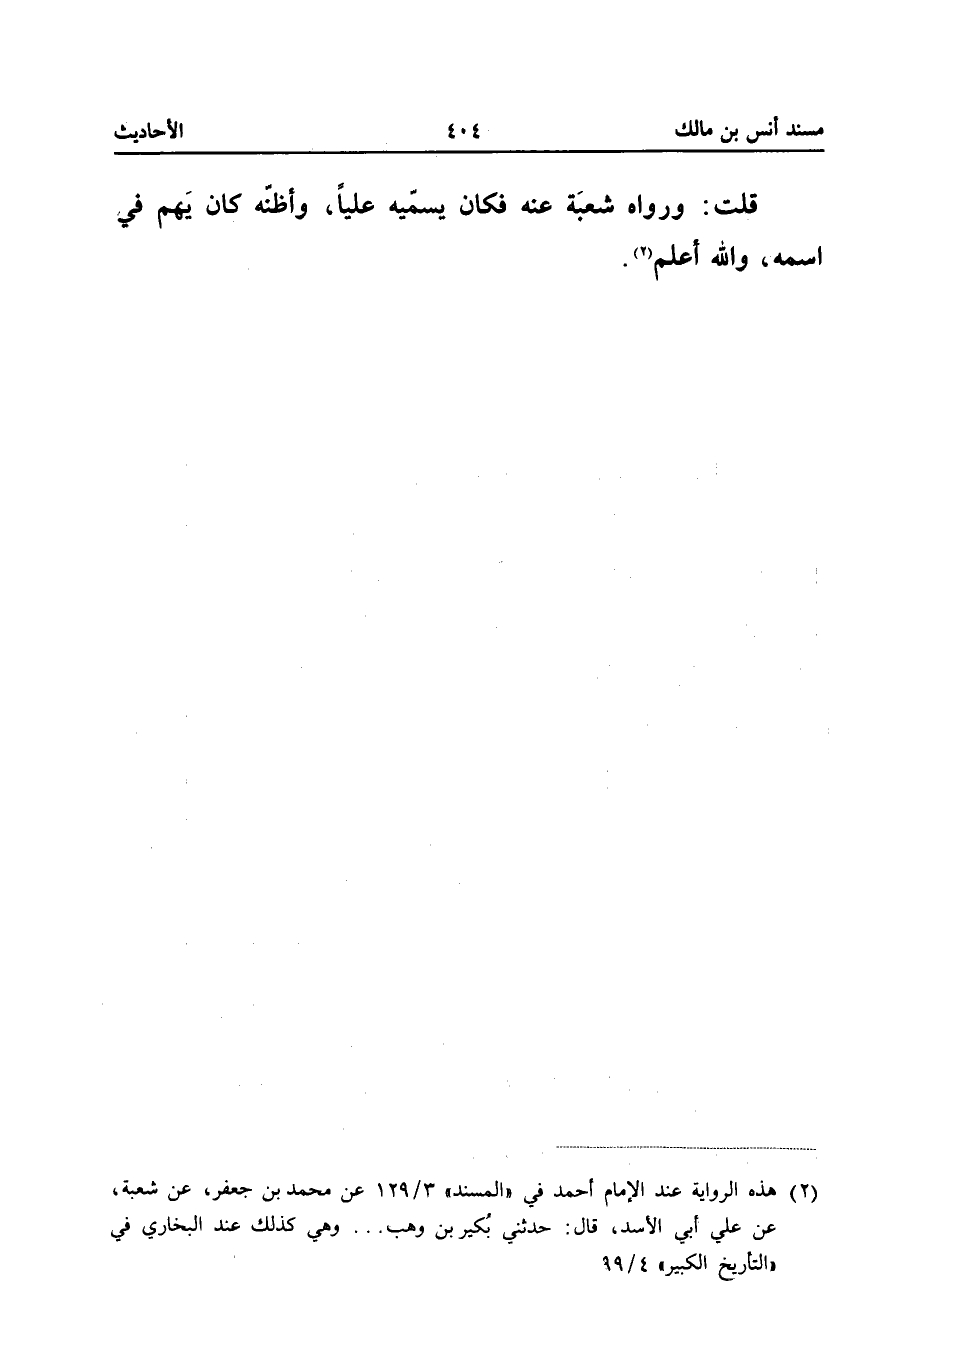 مسند أنس بن مالك ٤٠٤ الأحاديث
قلت: ورواه شعبَة عنه فكان يسمّيه علياً، وأظنّه كان يَهم في
اسمه، والله أعلم(٢).
(٢) هذه الرواية عند الإمام أحمد في «المسند» ١٢٩/٣ عن محمد بن جعفر، عن شعبة،
عن علي أبي الأسد، قال: حدثني بُكير بن وهب... وهي كذلك عند البخاري في
«التأريخ الكبير» ٩٩/٤